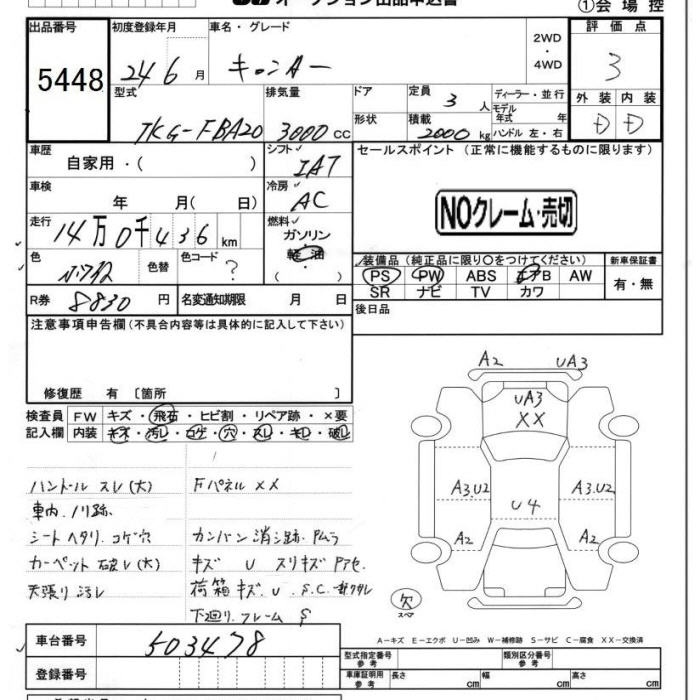 オークション出品申込書
①会場控
出品番号 初度登録年月 車名・グレード 2WD・4WD 評価点
5448 24 6月 キャンター 3
型式 排気量 ドア 定員 3人 ディーラー・並行
モデル年式 年 外装 内装
TKG-FBA20 3000cc 形状 積載 2000kg ハンドル 左・右 D D
車歴 シフト セールスポイント (正常に機能するものに限ります)
自家用・( ) IAT
車検 冷房
年 月( 日) AC NOクレーム・売切
走行 燃料
14万0千436km ガソリン
軽油
色 色替 色コード 装備品 (純正品に限り○をつけてください) 新車保証書
? PS PW ABS エアB AW 有・無
SR ナビ TV カワ
R券 8830円 名変通知期限 月 日 後日品
注意事項申告欄(不具合内容等は具体的に記入して下さい)
修復歴 有 〔箇所 〕
検査員 FW キズ・飛石・ヒビ割・リペア跡・×要
記入欄 内装 キズ・汚レ・コゲ・穴・スレ・キレ・破レ
A2 UA3
UA3
XX
A3.U2 U4 A3.U2
A2 A2
欠
スペア
ハンドル スレ(大) Fパネル XX
車内ノリ跡
シートヘタリ.コゲ穴 カンバン消シ跡.Pムラ
カーペット破レ(大) キズ U スリキズ Pアセ
天張り汚レ 荷箱キズ.U.S.C.
下廻り.フレーム S
A-キズ E-エクボ U-凹み W-補修跡 S-サビ C-腐食 XX-交換済
車台番号 503478
型式指定番号 参考 類別区分番号 参考
登録番号
車庫証明用 参考 長さ cm 幅 cm 高さ cm